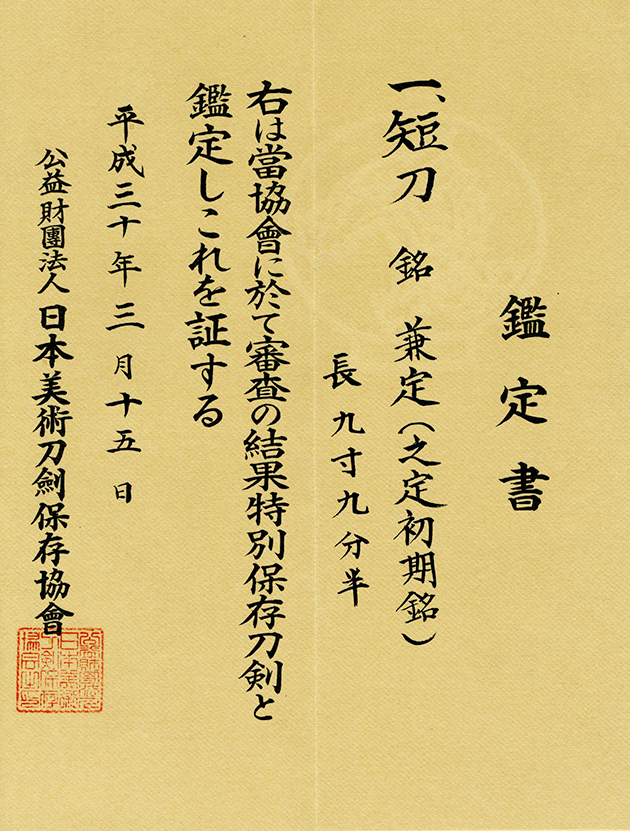 鑑定書
一、短刀 銘 兼定(之定初期銘)
長九寸九分半
右は當協會に於て審査の結果特別保存刀剣と
鑑定しこれを証する
平成三十年三月十五日
公益財團法人日本美術刀劍保存協會